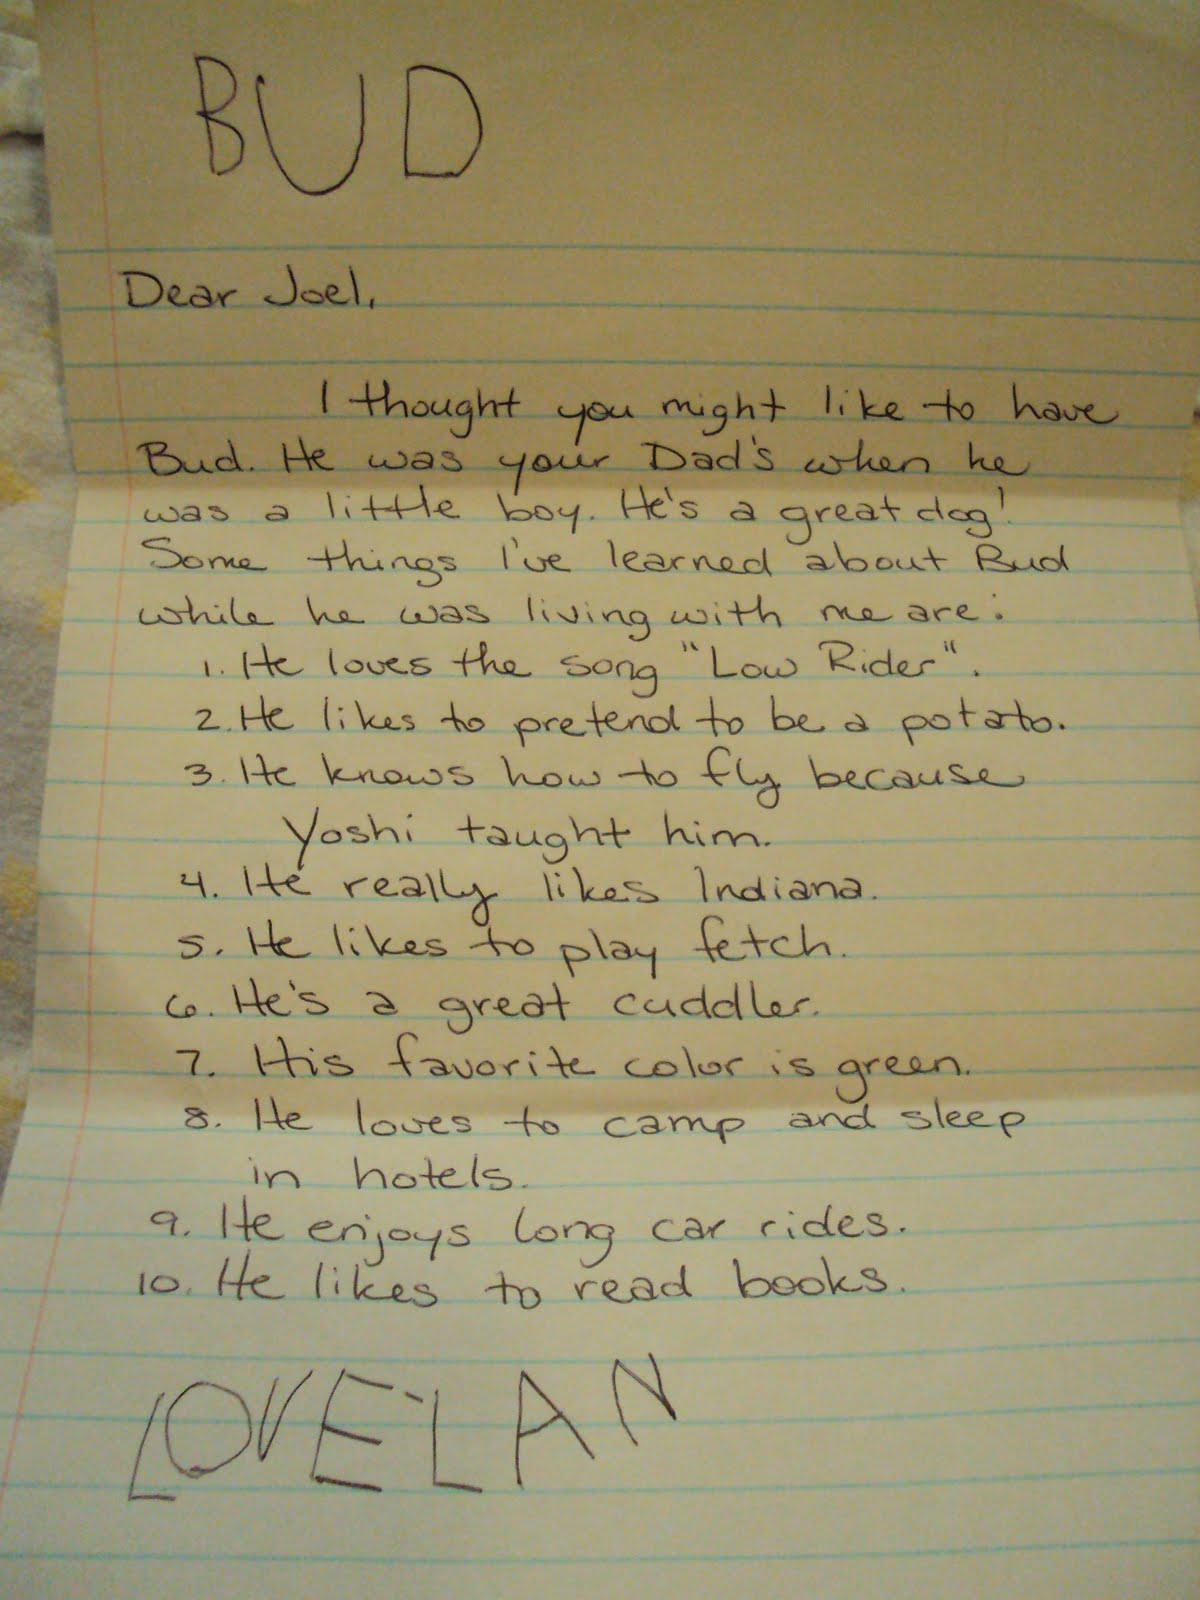 BUD
Dear Joel,
I thought you might like to have
Bud. He was your Dad's when he
was a little boy. He's a great dog!
Some things I've learned about Bud
while he was living with me are:
1. He loves the song "Low Rider".
2. He likes to pretend to be a potato.
3. He knows how to fly because
Yoshi taught him.
4. He really likes Indiana.
5. He likes to play fetch.
6. He's a great cuddler.
7. His favorite color is green.
8. He loves to camp and sleep
in hotels.
9. He enjoys long car rides.
10. He likes to read books.
LOVE LAN